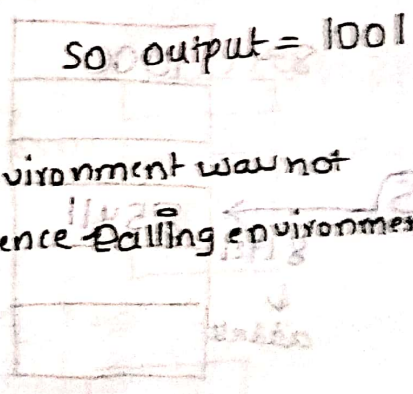 so output = 1001
vironment was not
ence calling environmen